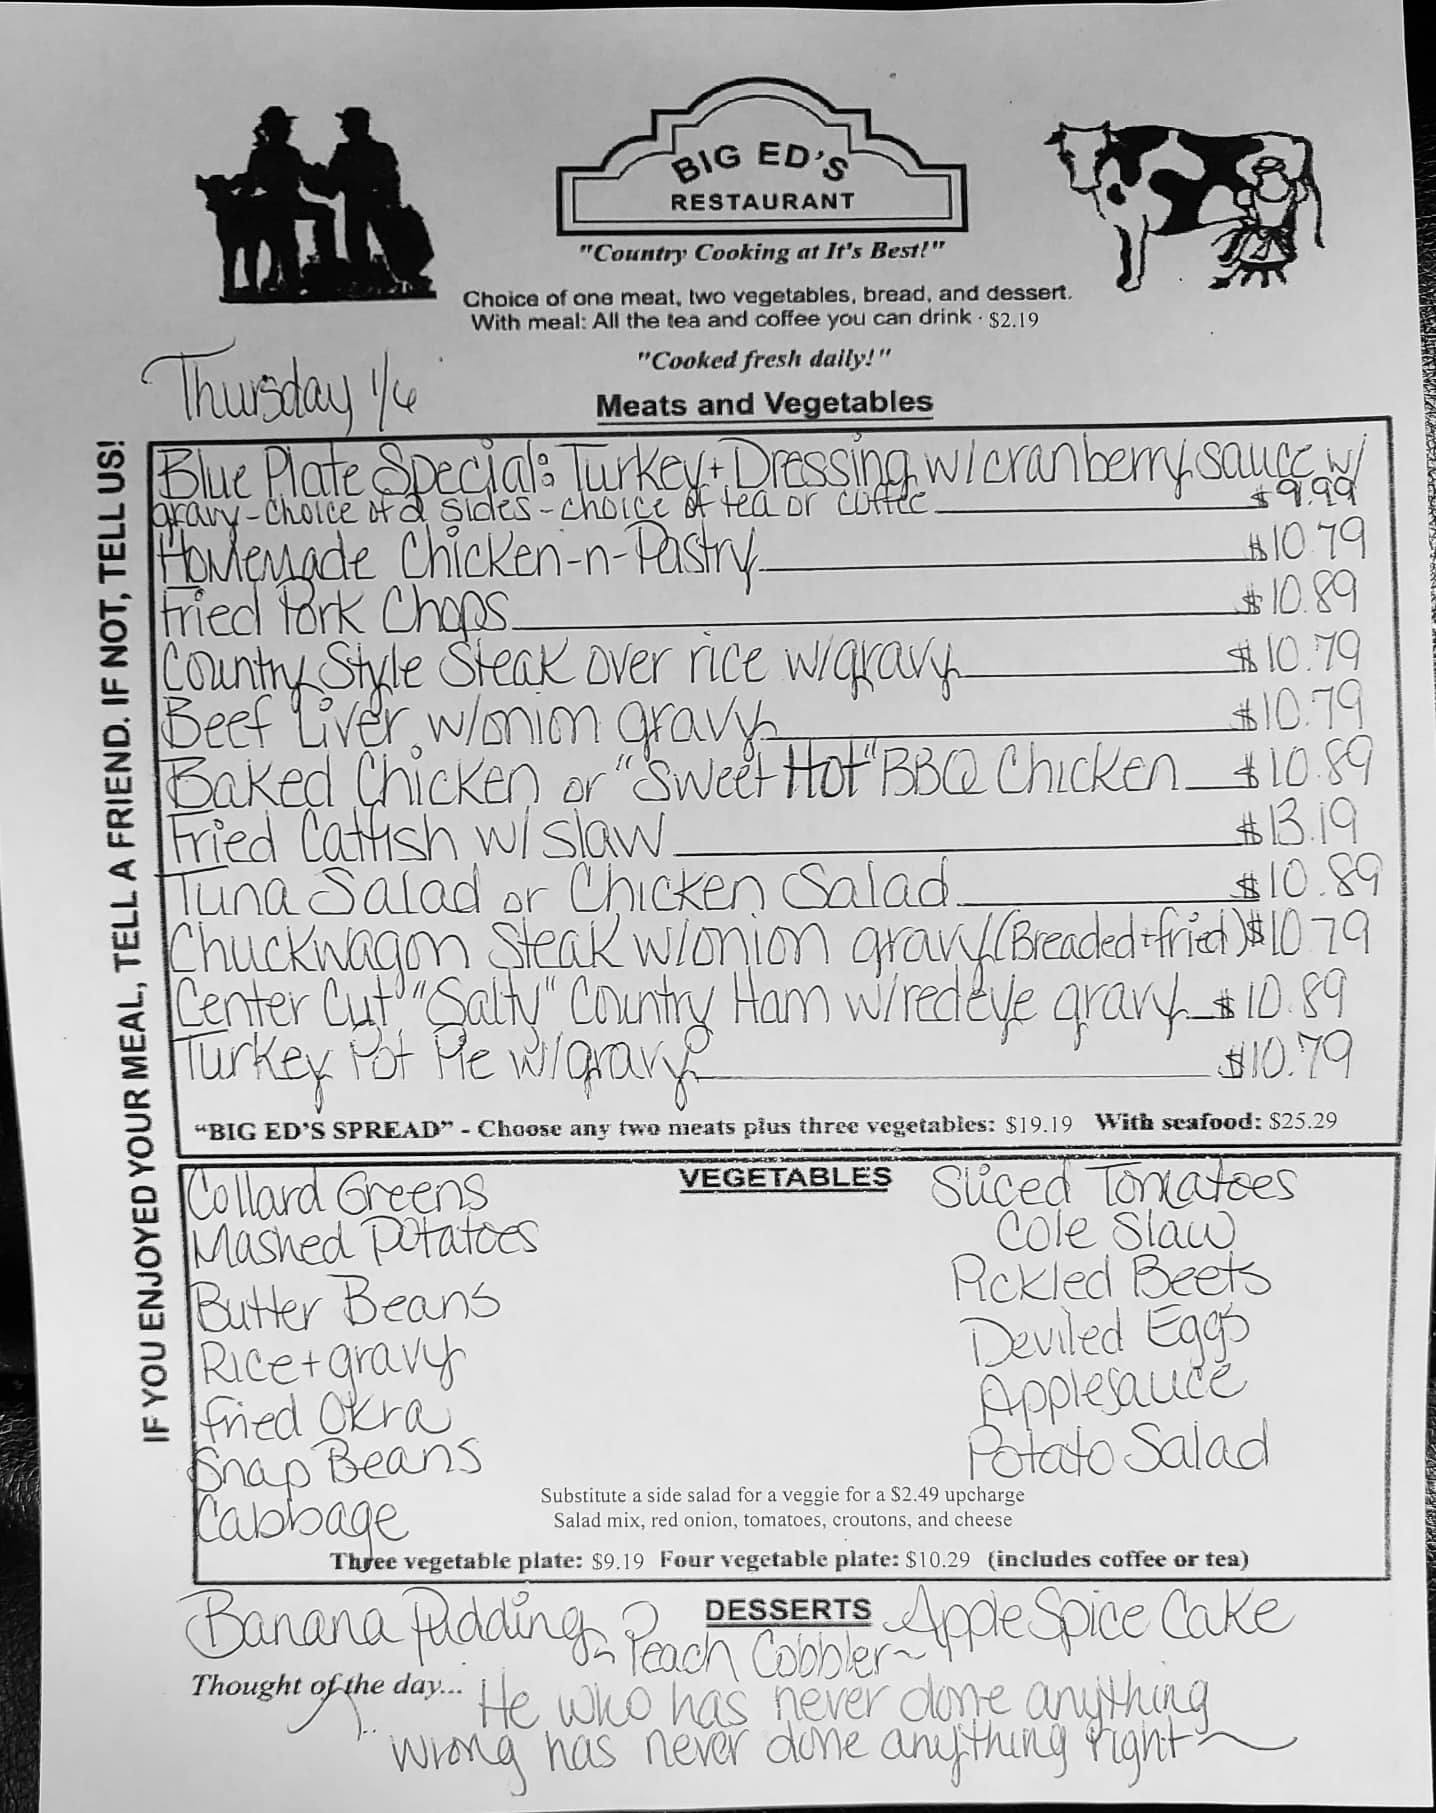 BIG ED'S
RESTAURANT
"Country Cooking at It's Best!"
Choice of one meat, two vegetables, bread, and dessert.
With meal: All the tea and coffee you can drink · $2.19
"Cooked fresh daily!"
Thursday 1/6
Meats and Vegetables
IF YOU ENJOYED YOUR MEAL, TELL A FRIEND. IF NOT, TELL US!
Blue Plate Special: Turkey + Dressing w/cranberry sauce w/
gravy - choice of 2 sides - choice of tea or coffee $9.99
Homemade Chicken-n-Pastry $10.79
Fried Pork Chops $10.89
Country Style Steak over rice w/gravy $10.79
Beef Liver w/onion gravy $10.79
Baked Chicken or "Sweet Hot" BBQ Chicken $10.89
Fried Catfish w/ slaw $13.19
Tuna Salad or Chicken Salad $10.89
Chuckwagon Steak w/onion gravy (Breaded + fried) $10.79
Center Cut "Salty" Country Ham w/redeye gravy $10.89
Turkey Pot Pie w/gravy $10.79
"BIG ED'S SPREAD" - Choose any two meats plus three vegetables: $19.19 With seafood: $25.29
VEGETABLES
Collard Greens
Mashed Potatoes
Butter Beans
Rice + gravy
Fried Okra
Snap Beans
Cabbage
Sliced Tomatoes
Cole Slaw
Pickled Beets
Deviled Eggs
Applesauce
Potato Salad
Substitute a side salad for a veggie for a $2.49 upcharge
Salad mix, red onion, tomatoes, croutons, and cheese
Three vegetable plate: $9.19 Four vegetable plate: $10.29 (includes coffee or tea)
DESSERTS
Banana Pudding ~ Peach Cobbler ~ Apple Spice Cake
Thought of the day... He who has never done anything
wrong has never done anything right~